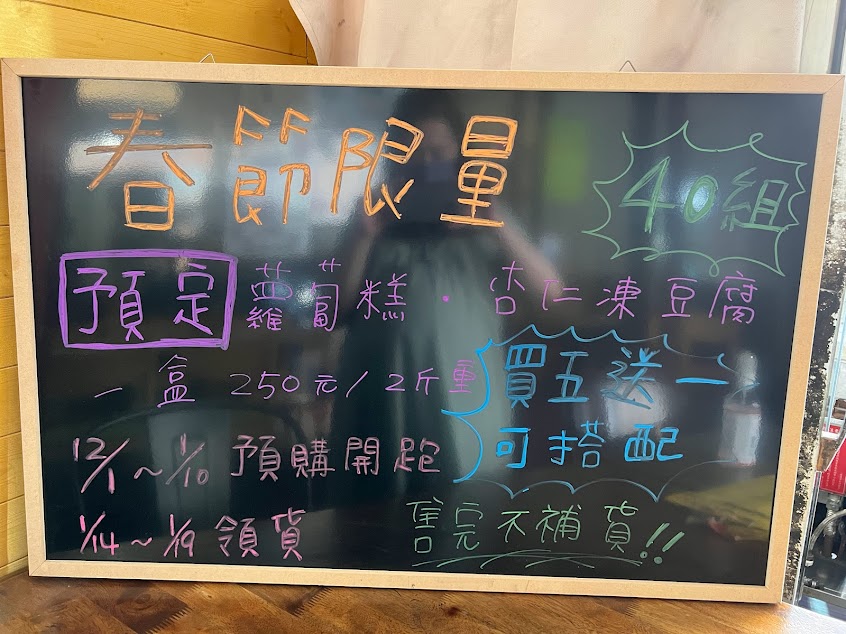 春節限量
40組
預定 蘿蔔糕·杏仁凍豆腐
一盒 250元/2斤重
買五送一
可搭配
12/1~1/10 預購開跑
1/14~1/19 領貨
售完不補貨!!